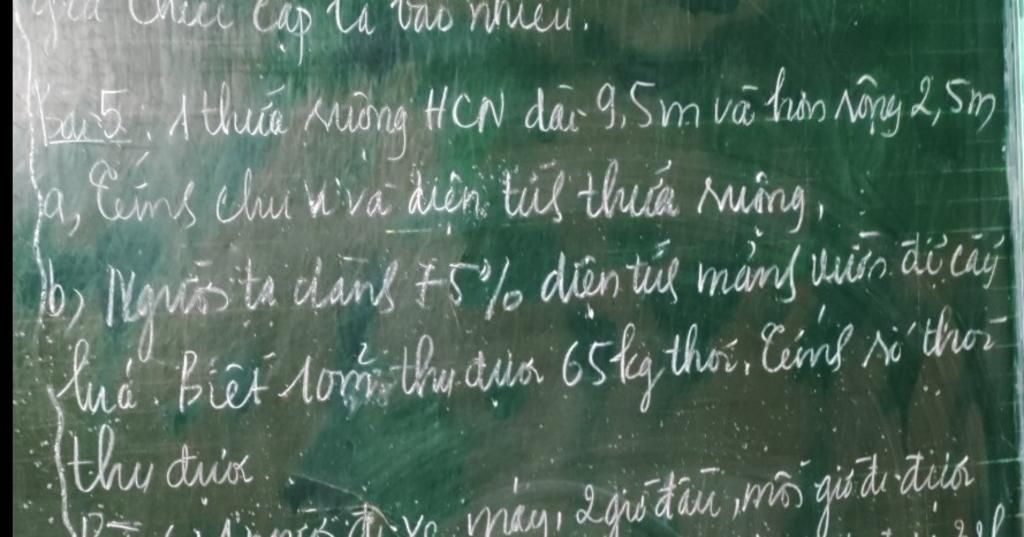 giá chiếc cặp là bao nhiêu.
bài 5: 1 thửa ruộng HCN dài 9,5m và hơn rộng 2,5m
a, Tính chu vi và diện tích thửa ruộng.
b, Người ta dành 75% diện tích mảnh vườn để cấy
lúa. Biết 10m² thu được 65kg thóc. Tính số thóc
thu được
máy, 2 giờ đầu, mỗi giờ đi được